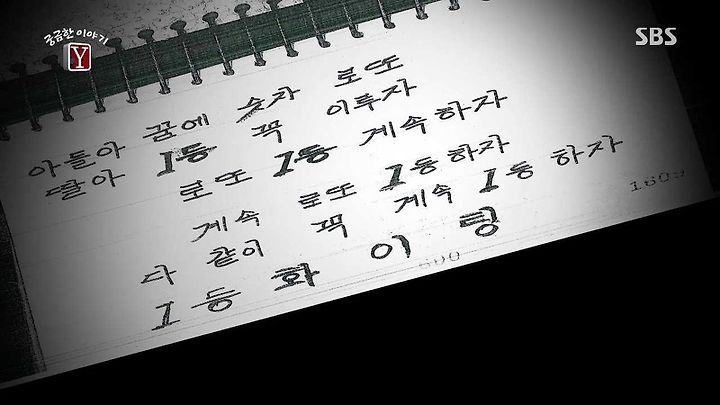 궁금한 이야기
Y
SBS
아들아 꿈에 숫자 로또
딸아 1등 꼭 이루자
로또 1등 계속하자
계속 로또 1등하자
다 같이 꼭 계속 1등 하자
1등 화이팅